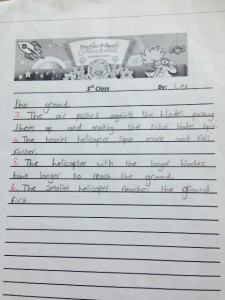 3rd Class By: Lex
the ground.
3. The air pushes against the blades pushing
them up and making the rotor blades spin.
4. The heavier helicopter spin more and fell
faster.
5. The helicopter with the larger blades
took longer to reach the ground.
6. The smaller helicopter reaches the ground
first.